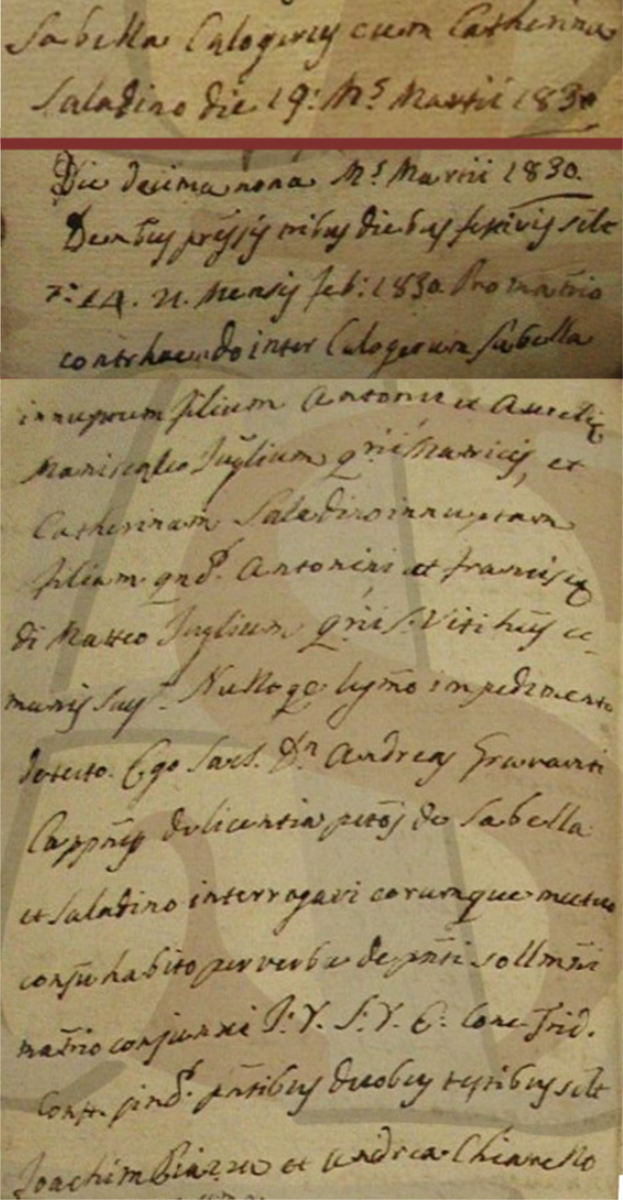 Sabella Calogerus cum Catherina
Saladino die 19: Ms Martii 1830
Die decima nona Ms Martii 1830.
Denbus pressis tribus diebus festivis silt
7: 14. 21. Mensis feb: 1830. Pro matrio
contrhaendo inter Calogerum Sabella
innuptum filium Antonii et Aureliæ
Maniscalco Juglium qrii Matricis, et
Catherinam Saladino innuptam
filiam qnd. Antonini et Franciscæ
di Matteo Juglium qrii S. Viti hus
Nulloqe lgmo impedimento
detecto. Ego Sacs. Dn Andreas
Cappnus de licentia de Sabella
et Saladino interrogavi eorumque mutuo
consu habito per verba de pnti sollmri
matrio conjunxi J: Y. S: Y. E: Conc. Trid.
Const. sind. pntibus duobus testibus silt
Joachim Piazza et Andrea Chiarello